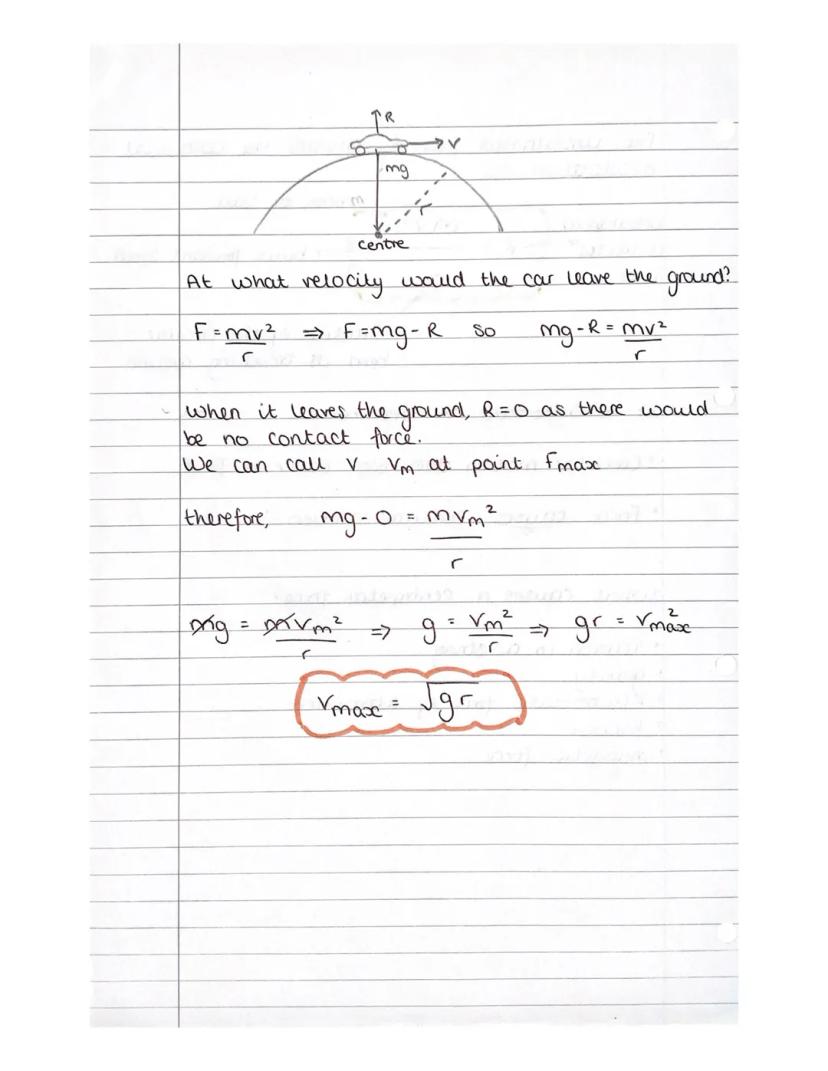 R
v
mg
r
centre
At what velocity would the car leave the ground?
F = mv²/r ⇒ F = mg - R so mg - R = mv²/r
When it leaves the ground, R = 0 as there would
be no contact force.
We can call v Vm at point Fmax
therefore, mg - 0 = mvm²/r
mg = mvm²/r ⇒ g = vm²/r ⇒ gr = vmax²
Vmax = √gr